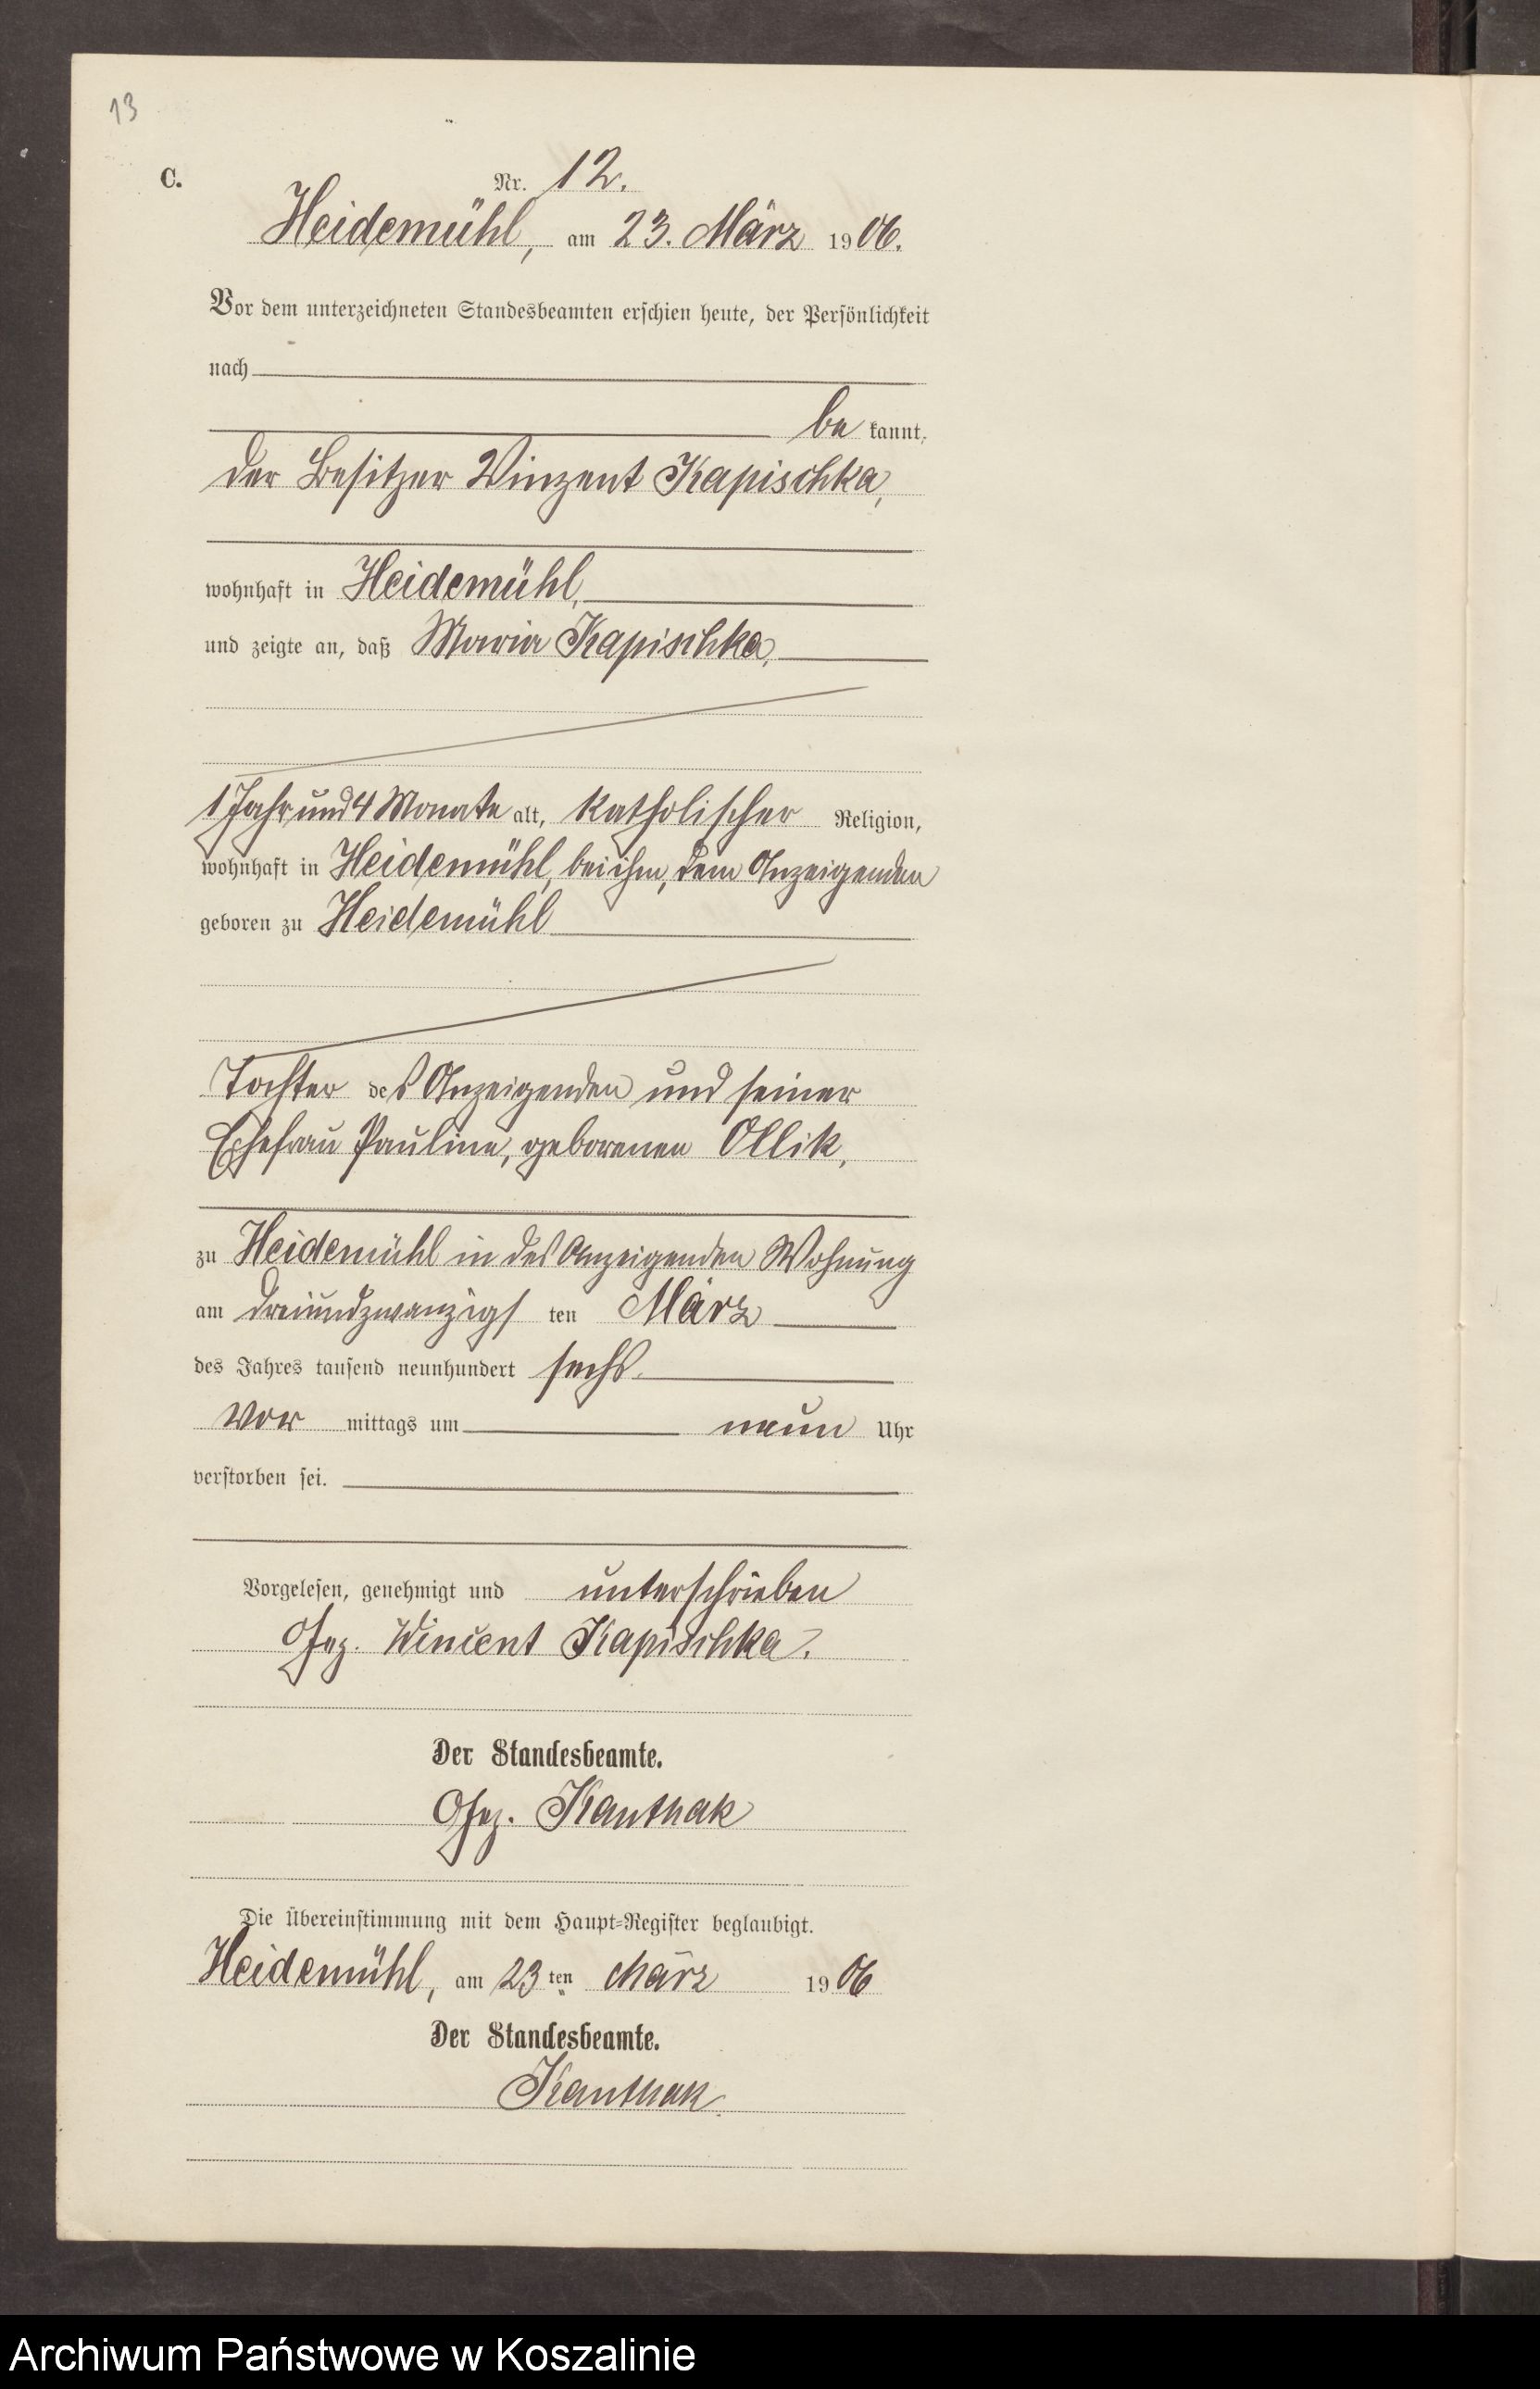 13
C.
Nr. 12.
Heidemühl, am 23. März 1906.
Vor dem unterzeichneten Standesbeamten erschien heute, der Persönlichkeit
nach
be kannt,
der Besitzer Vinzent Kapischka,
wohnhaft in Heidemühl,
und zeigte an, daß Maria Kapischka,
1 Jahr und 4 Monate alt, katholischer Religion,
wohnhaft in Heidemühl, bei ihm, dem Anzeigenden
geboren zu Heidemühl
Tochter des Anzeigenden und seiner
Ehefrau Pauline, geborenen Ollik,
zu Heidemühl in des Anzeigenden Wohnung
am dreiundzwanzigs ten März
des Jahres tausend neunhundert sechs.
Vor mittags um neun Uhr
verstorben sei.
Vorgelesen, genehmigt und unterschrieben
Gez. Wincent Kapischka.
Der Standesbeamte.
Gez. Kanthak
Die Übereinstimmung mit dem Haupt-Register beglaubigt.
Heidemühl, am 23 ten März 1906
Der Standesbeamte.
Kanthak
Archiwum Państwowe w Koszalinie